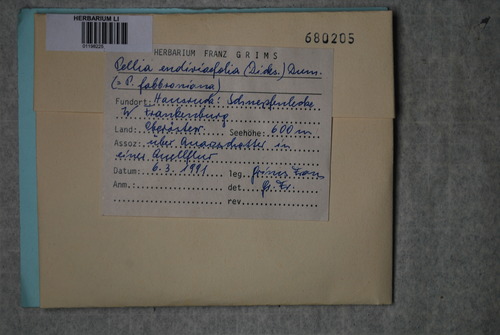 HERBARIUM LI
680205
HERBARIUM FRANZ GRIMS
Pellia endiviaefolia (Dicks.) Dum.
(= P. fabbroniana)
Fundort: Hausruck: Schnepfenlecke
W. Frankenburg
Land: Oberösterr. Seehöhe: 600 m
Assoz: über Quarzschotter in
einer Quellflur
Datum: 6.3.1991 leg. Grims Franz
Anm.: det. G. Fr.
rev.